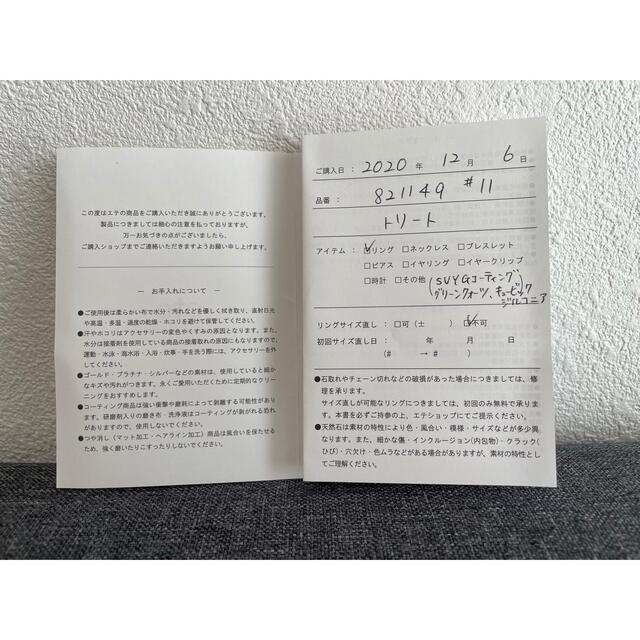 この度はエテの商品をご購入いただき誠にありがとうございます。
製品につきましては細心の注意を払っておりますが、
万一お気づきの点がございましたら、
ご購入ショップまでご連絡いただきますようお願い申し上げます。
— お手入れについて —
●ご使用後は柔らかい布で水分・汚れなどを優しく拭き取り、直射日光
や高温・多湿・過度の乾燥・ホコリを避けて保管してください。
●汗やホコリはアクセサリーの変色やくすみの原因となります。また、
水分は接着剤を使用している商品の接着取れの原因にもなりますので、
運動・水泳・海水浴・入浴・炊事・手を洗う際には、アクセサリーを外
してください。
●ゴールド・プラチナ・シルバーなどの素材は、使用していると細か
なキズや汚れがつきます。永くご愛用いただくために定期的なクリー
ニングをおすすめします。
●コーティング商品は強い衝撃や磨耗によって剥離する可能性があり
ます。研磨剤入りの磨き布・洗浄液はコーティングが剥がれる恐れ
がありますので、使用しないでください。
●つや消し（マット加工・ヘアライン加工）商品は風合いを保たせる
ため、強く磨いたりこすったりしないでください。
ご購入日： 2020 年 12 月 6 日
品番： 821149 #11
トリート
アイテム： ☑リング □ネックレス □ブレスレット
□ピアス □イヤリング □イヤークリップ
□時計 □その他 (SVYGコーティング
グリーンクォーツ、キュービック
ジルコニア
リングサイズ直し： □可（士 ） ☑不可
初回サイズ直し日： 年 月 日
(# → # )
●石取れやチェーン切れなどの破損があった場合につきましては、修
理を承ります。
サイズ直しが可能なリングにつきましては、初回のみ無料で承りま
す。本書を必ずご持参の上、エテショップにてご提示ください。
●天然石は素材の特性により色・風合い・模様・サイズなどが多少異
なります。また、細かな傷・インクルージョン(内包物)・クラック(
ひび)・穴欠け・色ムラなどがある場合がありますが、素材の特性とし
てご理解ください。